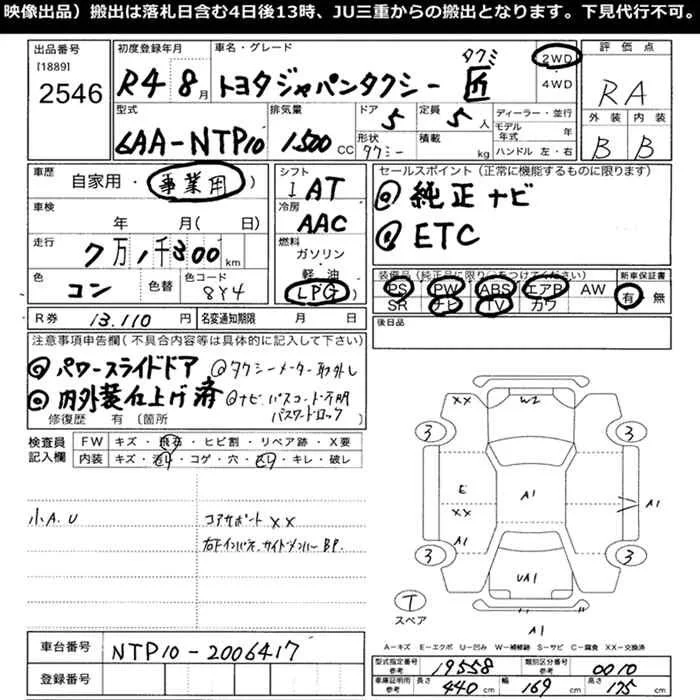 映像出品）搬出は落札日含む4日後13時、JU三重からの搬出となります。下見代行不可。
出品番号
[1889]
2546
初度登録年月
R4 8月
車名・グレード
トヨタジャパンタクシー 匠
タクミ
2WD
・
4WD
評価点
RA
外装 内装
B B
型式
6AA-NTP10
排気量
1500 CC
ドア
5
定員
5人
形状
タクシー
積載
kg
ディーラー・並行
モデル年式 年
ハンドル 左・右
車歴
自家用・事業用 )
車検
年 月( 日)
走行
7万1千300km
色
コン
色替
色コード
8Y4
シフト
I AT
冷房
AAC
燃料
ガソリン
・
軽油
LPG
セールスポイント（正常に機能するものに限ります）
◎純正ナビ
◎ETC
装備品（純正品に限り○をつけてください）
PS PW ABS エアB AW
SR ナビ TV カワ
新車保証書
有・無
R券 13,110円
名変通知期限 月 日
後日品
注意事項申告欄(不具合内容等は具体的に記入して下さい)
◎パワースライドドア ◎タクシーメーター取外し
◎内外装仕上げ済 ◎ナビ パスコード不明
パスワードロック
修復歴 有〔箇所
検査員記入欄
FW キズ・飛石・ヒビ割・リペア跡・X要
内装 キズ・汚レ・コゲ・穴・スレ・キレ・破レ
小A.U
コアサポート XX
右Fインパネ、サイドメンバー BP.
XX W2
3 3
E
XX
A1
A1
A1
3 3
UA1
T
スペア
A1
A－キズ E－エクボ U－凹み W－補修跡 S－サビ C－腐食 XX－交換済
車台番号
NTP10-2006417
登録番号
型式指定番号参考 19558
類別区分番号参考 0010
車庫証明用参考 長さ 440cm 幅 169cm 高さ 175cm